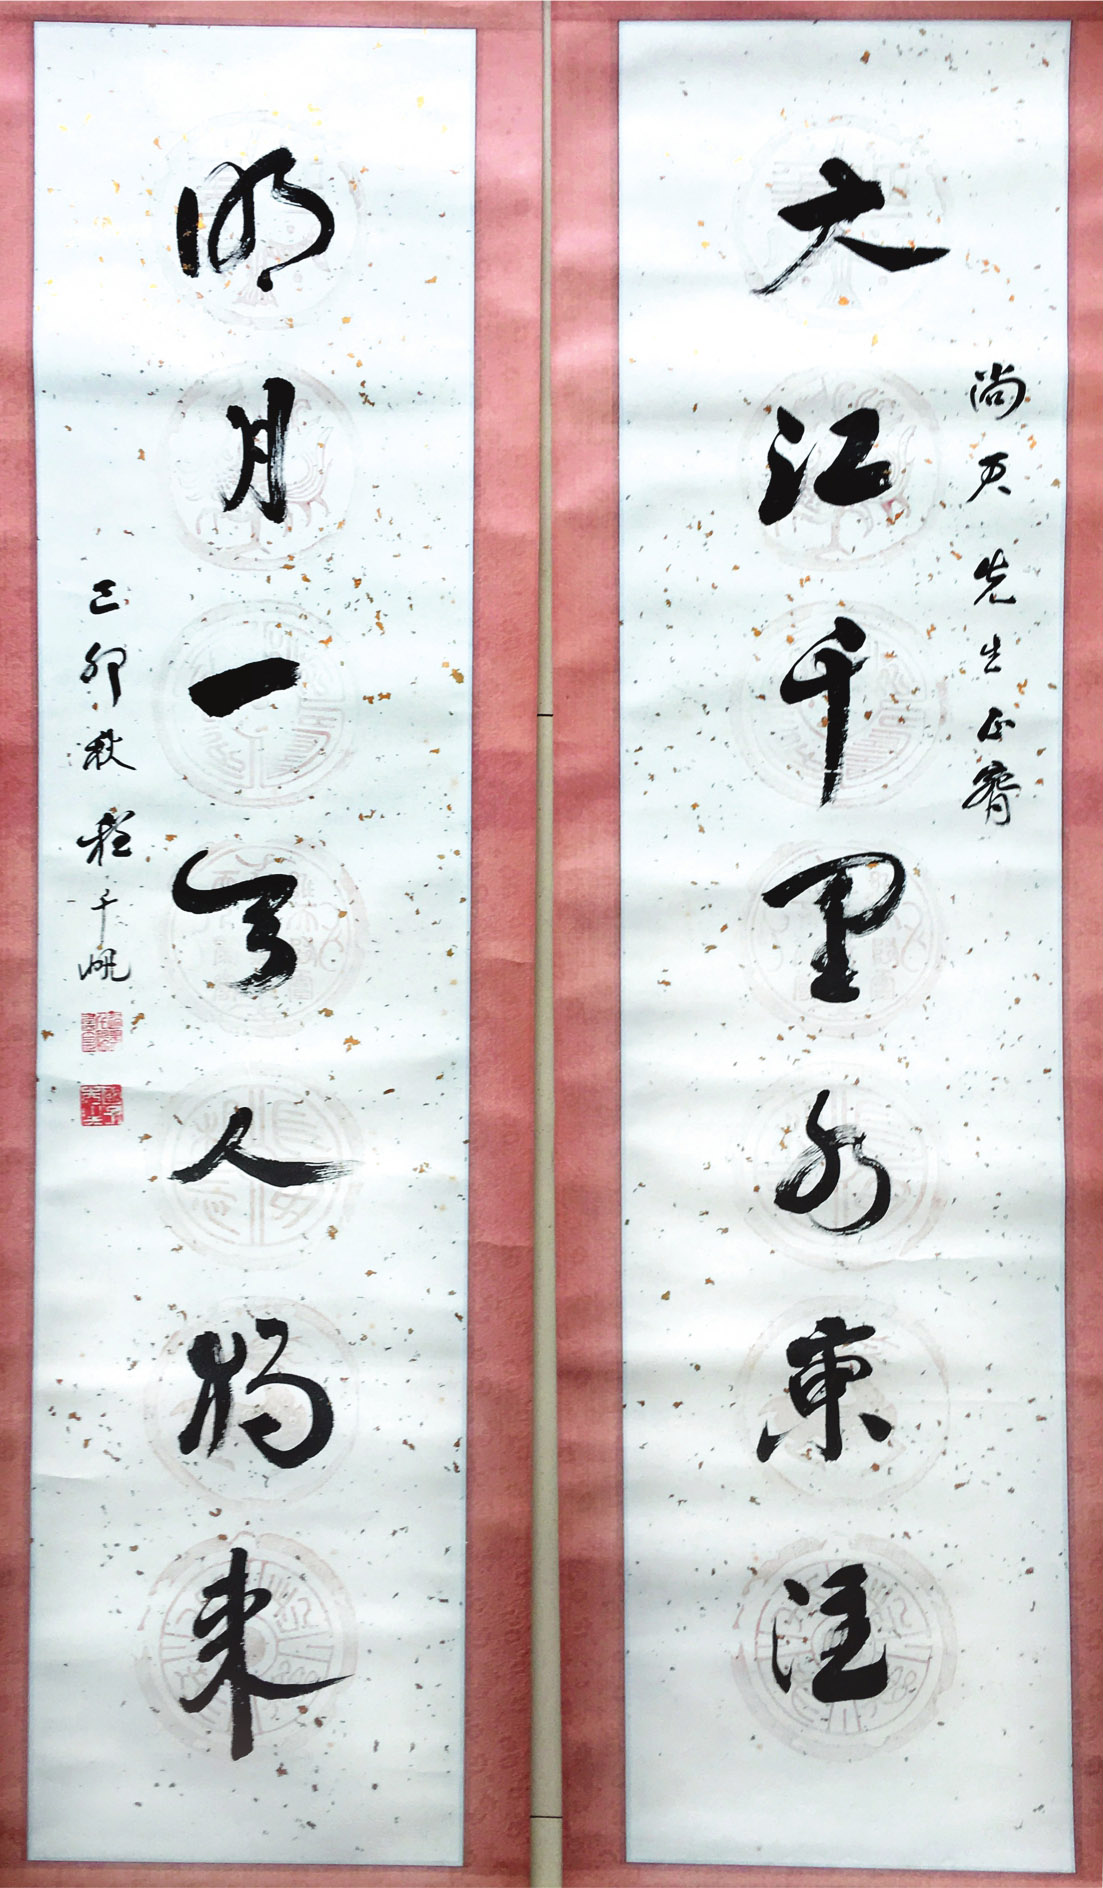 大江千里水東注
尚先生正
明月一亭人獨來
己卯秋程千帆